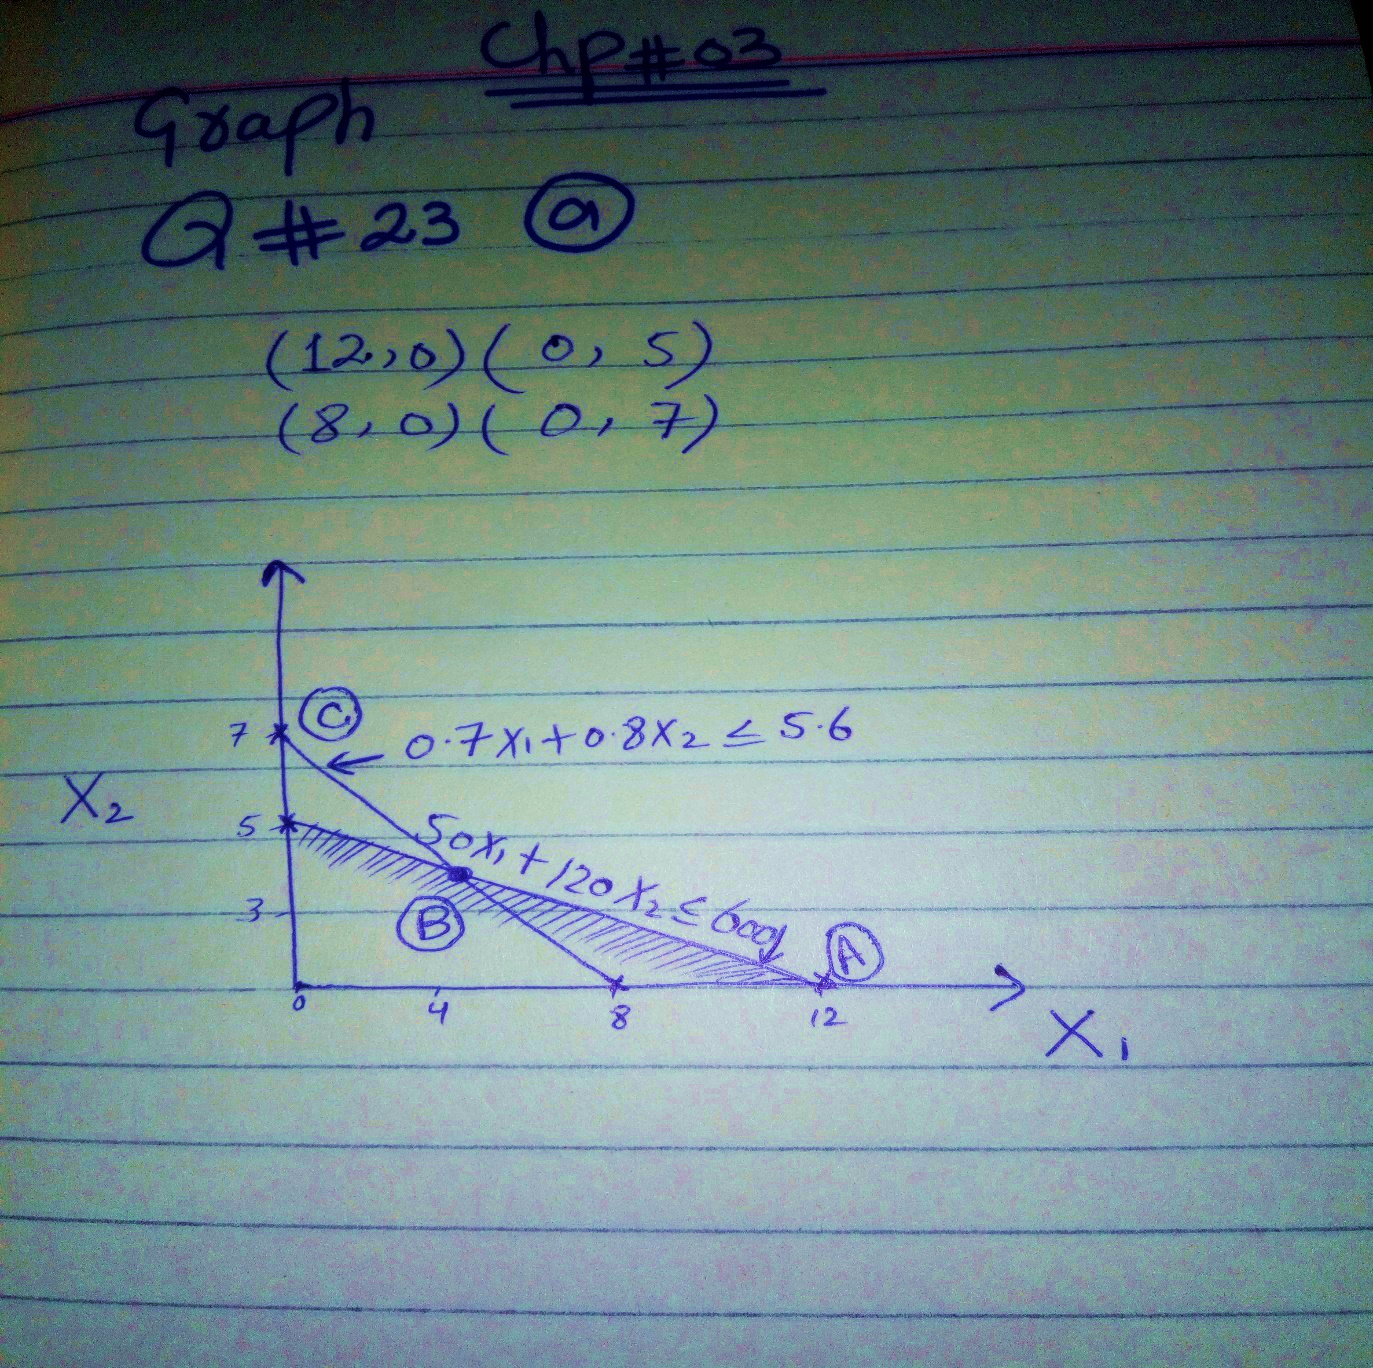 Chp#03
Graph
Q#23 (a)
(12,0)(0,5)
(8,0)(0,7)
7 (C) 0.7X₁+0.8X₂ ≤ 5.6
X₂
5 50X₁+120X₂≤600
3 (B) (A)
0 4 8 12
X₁